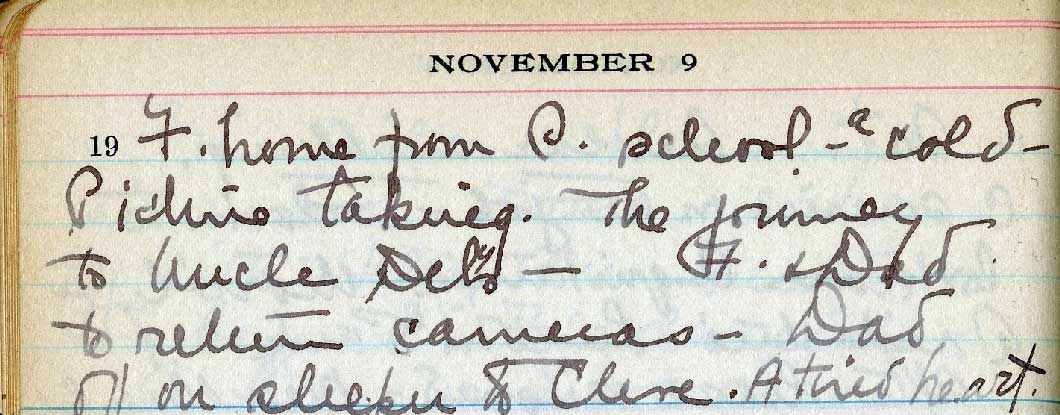 NOVEMBER 9
19 F. home from C. school - a cold -
Picture taking. The journey
to Uncle Deb's — F. & Dad
to return cameras - Dad
off on sleeper to Cleve. A tired heart.